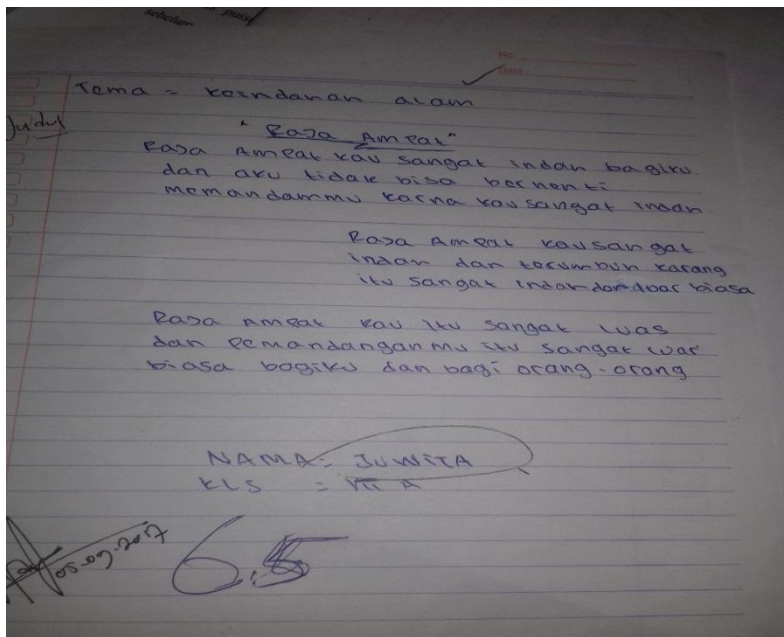 sebelum puisi
No
Date
Tema = keindahan alam
Judul
"Raja Ampat"
Raja Ampat kau sangat indah bagiku
dan aku tidak bisa berhenti
memandammu karna kau sangat indah
Raja Ampat kau sangat
indah dan terumbuh karang
itu sangat indah dan luar biasa
Raja Ampat kau itu sangat luas
dan Pemandanganmu itu sangat luar
biasa bagiku dan bagi orang-orang
NAMA = JUWITA
KLS = VII A
6.5